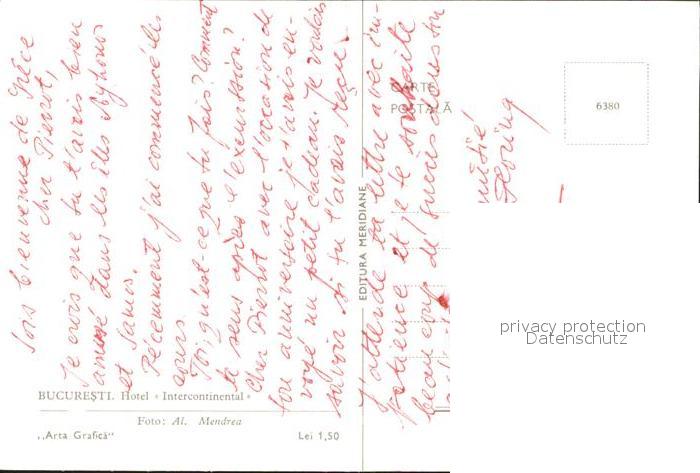 Sois bienvenue de Grèce
cher Pierrot,
Je crois que tu t'avais bien
amusé dans les îles Mykonos
et Samos.
Récemment j'ai commencé les
cours.
Toi, qu'est-ce que tu fais? Comment
te sens après l'excursion?
Cher Pierrot avec l'occasion de
ton anniversaire je t'avais en-
voyé un petit cadeau. Je voulais
savoir si tu l'avais reçu.
J'attends ta lettre avec im-
patience et je te souhaite
beaucoup de succès
mitié
CARTE
POȘTALĂ
6380
EDITURA MERIDIANE
BUCUREȘTI. Hotel « Intercontinental »
Foto: Al. Mendrea
„Arta Grafică"
Lei 1,50
privacy protection
Datenschutz